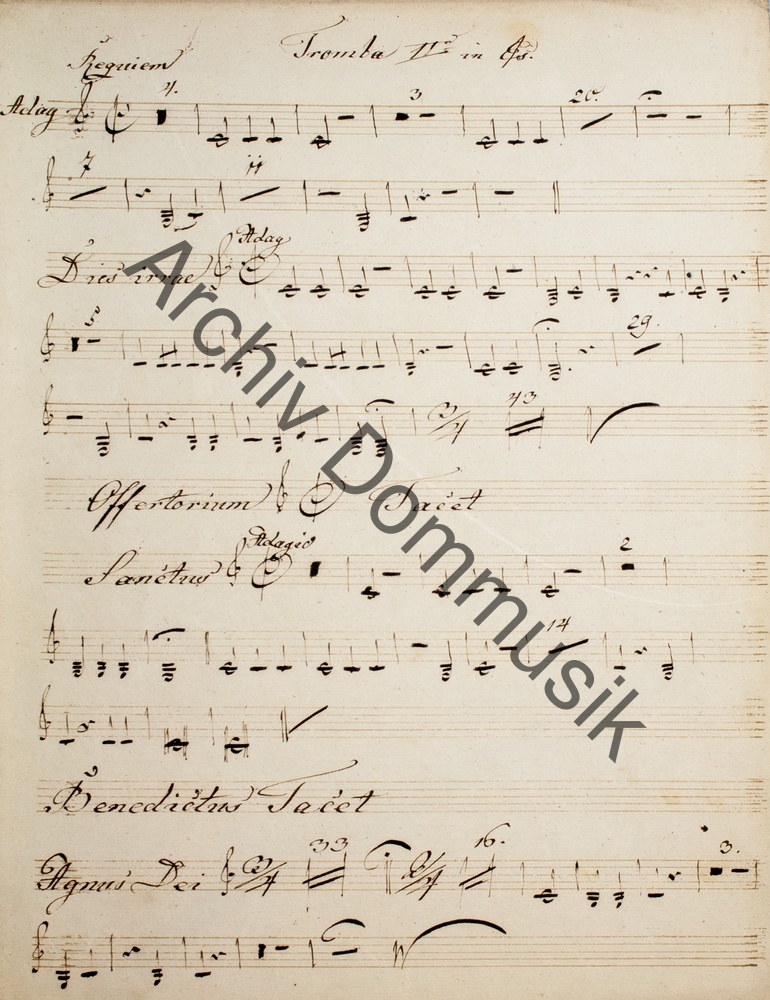 Requiem Tromba IIda in Es.
Adag 4. 3 20.
7 ii
Adag
Dies irrae
5 29.
3/4 43
Offertorium Tacet
Adagio
Sanctus 2
14
Benedictus Tacet
Agnus Dei 3/4 33 2/4 16. 3.
Archiv Dommusik